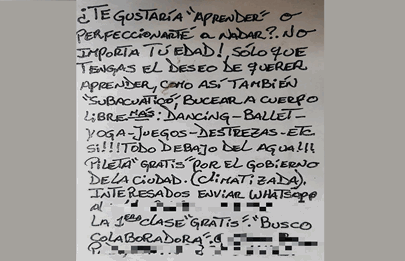 ¿TE GUSTARÍA "APRENDER" O
PERFECCIONARTE A NADAR?. NO
IMPORTA TÚ EDAD!, SÓLO QUE
TENGAS EL DESEO DE QUERER
APRENDER, COMO ASÍ TAMBIÉN
"SUBACUÁTICO", BUCEAR A CUERPO
LIBRE-MÁS: DANCING-BALLET-
YOGA-JUEGOS-DESTREZAS-ETC.
SI!!!TODO DEBAJO DEL AGUA!!!
PILETA "GRATIS" POR EL GOBIERNO
DE LA CIUDAD. (CLIMATIZADA).
INTERESADOS ENVIAR WHATSAPP
AL
LA 1ERA CLASE "GRATIS". "BUSCO
COLABORADORA".